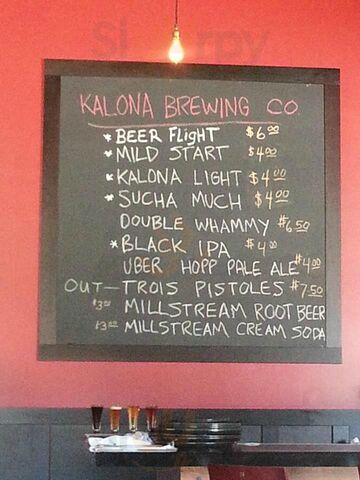 KALONA BREWING CO.
* BEER FLIGHT $6.00
* MILD START $4.00
* KALONA LIGHT $4.00
* SUCHA MUCH $4.00
DOUBLE WHAMMY $6.50
* BLACK IPA $4.00
UBER HOPP PALE ALE $4.00
OUT— TROIS PISTOLES $7.50
$3.00 MILLSTREAM ROOT BEER
$3.00 MILLSTREAM CREAM SODA